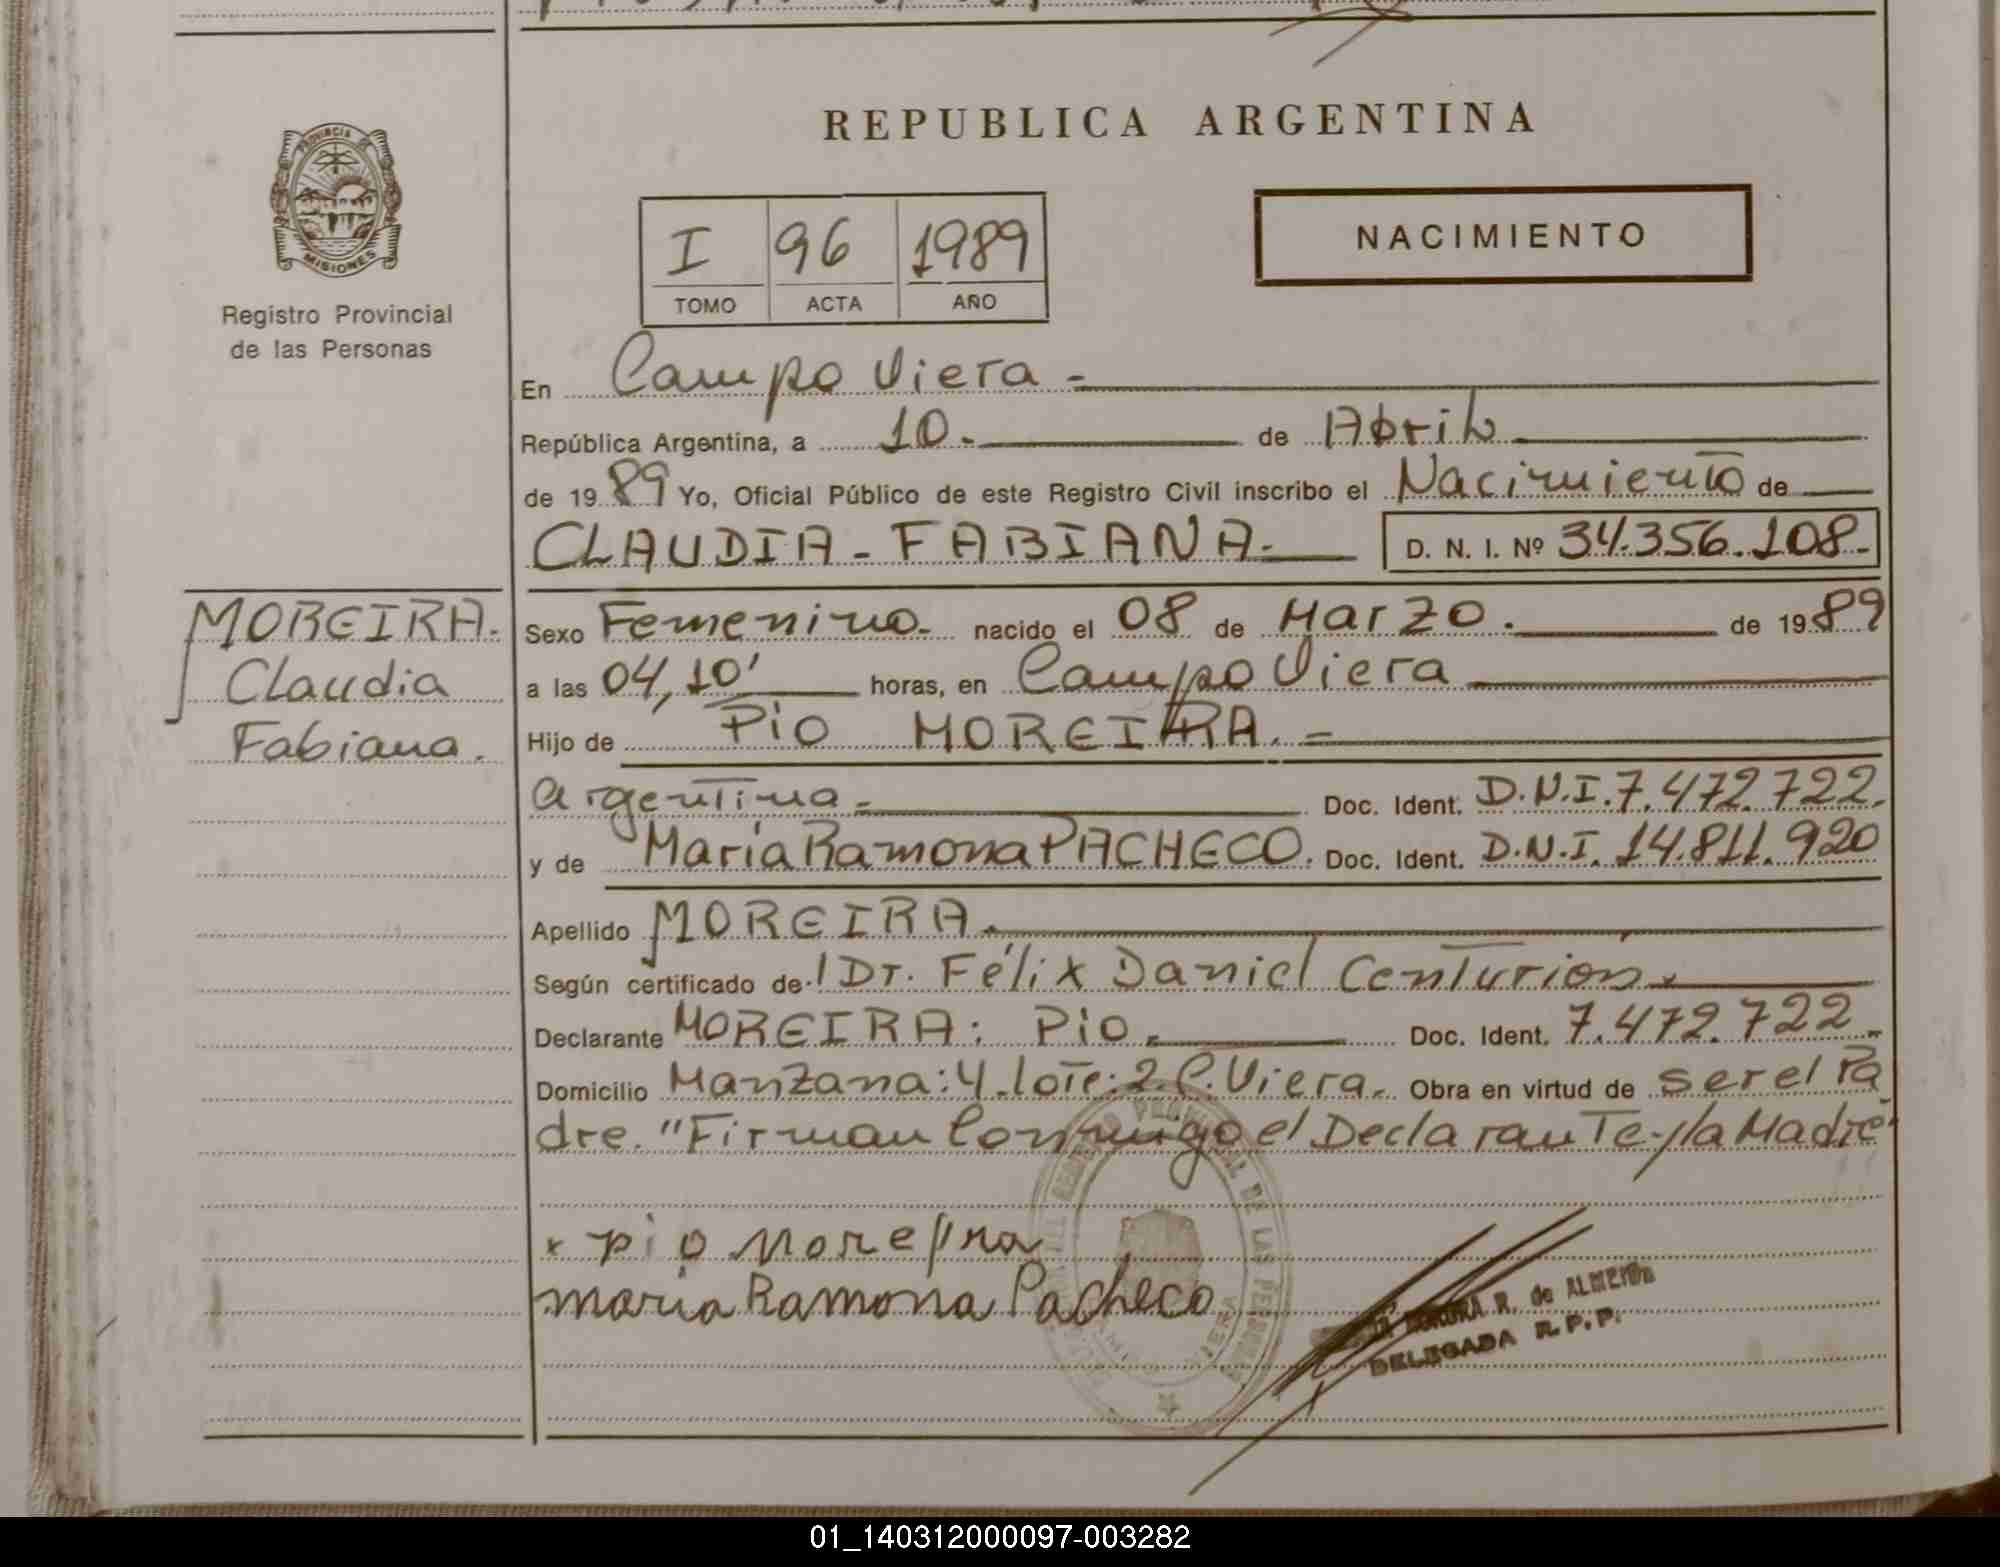 REPUBLICA ARGENTINA
PROVINCIA DE
MISIONES
Registro Provincial
de las Personas
I 96 1989
TOMO ACTA AÑO
NACIMIENTO
En Campo Viera -
República Argentina, a 10.- de Abril
de 1989 Yo, Oficial Público de este Registro Civil inscribo el Nacimiento de
CLAUDIA - FABIANA.- D. N. I. Nº 34.356.108.-
MOREIRA.
Claudia
Fabiana.
Sexo Femenino.- nacido el 08 de Marzo. de 1989
a las 04,10' horas, en Campo Viera
Hijo de Pio MOREIRA. -
argentina.- Doc. Ident. D.N.I. 7.472.722.
y de María Ramona PACHECO. Doc. Ident. D.N.I. 14.811.920
Apellido MOREIRA.
Según certificado de.l Dr. Félix Daniel Centurión.
Declarante MOREIRA: Pio.- Doc. Ident. 7.472.722.-
Domicilio Manzana: 4. lote: 2. C. Viera.- Obra en virtud de ser el Pa
dre. "Firman Conmigo el Declarante y la Madre"
x pio Moreira
maria Ramona Pacheco
REGISTRO PROVINCIAL DE LAS PERSONAS
R. de ALMEIDA
DELEGADA R.P.P.
01_140312000097-003282